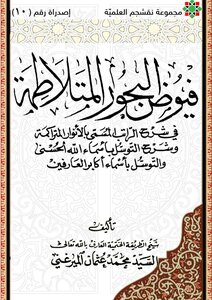 مجموعة نقشجم العلمية
إصدارة رقم (١٠)
فيوض البحور المتلاطمة
في شرح الراتب المسمى بالأنوار المتراكمة
وشرح التوسل بأسماء الله الحسنى
والتوسل بأسماء أكابر العارفين
تأليف
شيخ الطريقة الختمية العارف بالله تعالى
السيد محمد عثمان الميرغني